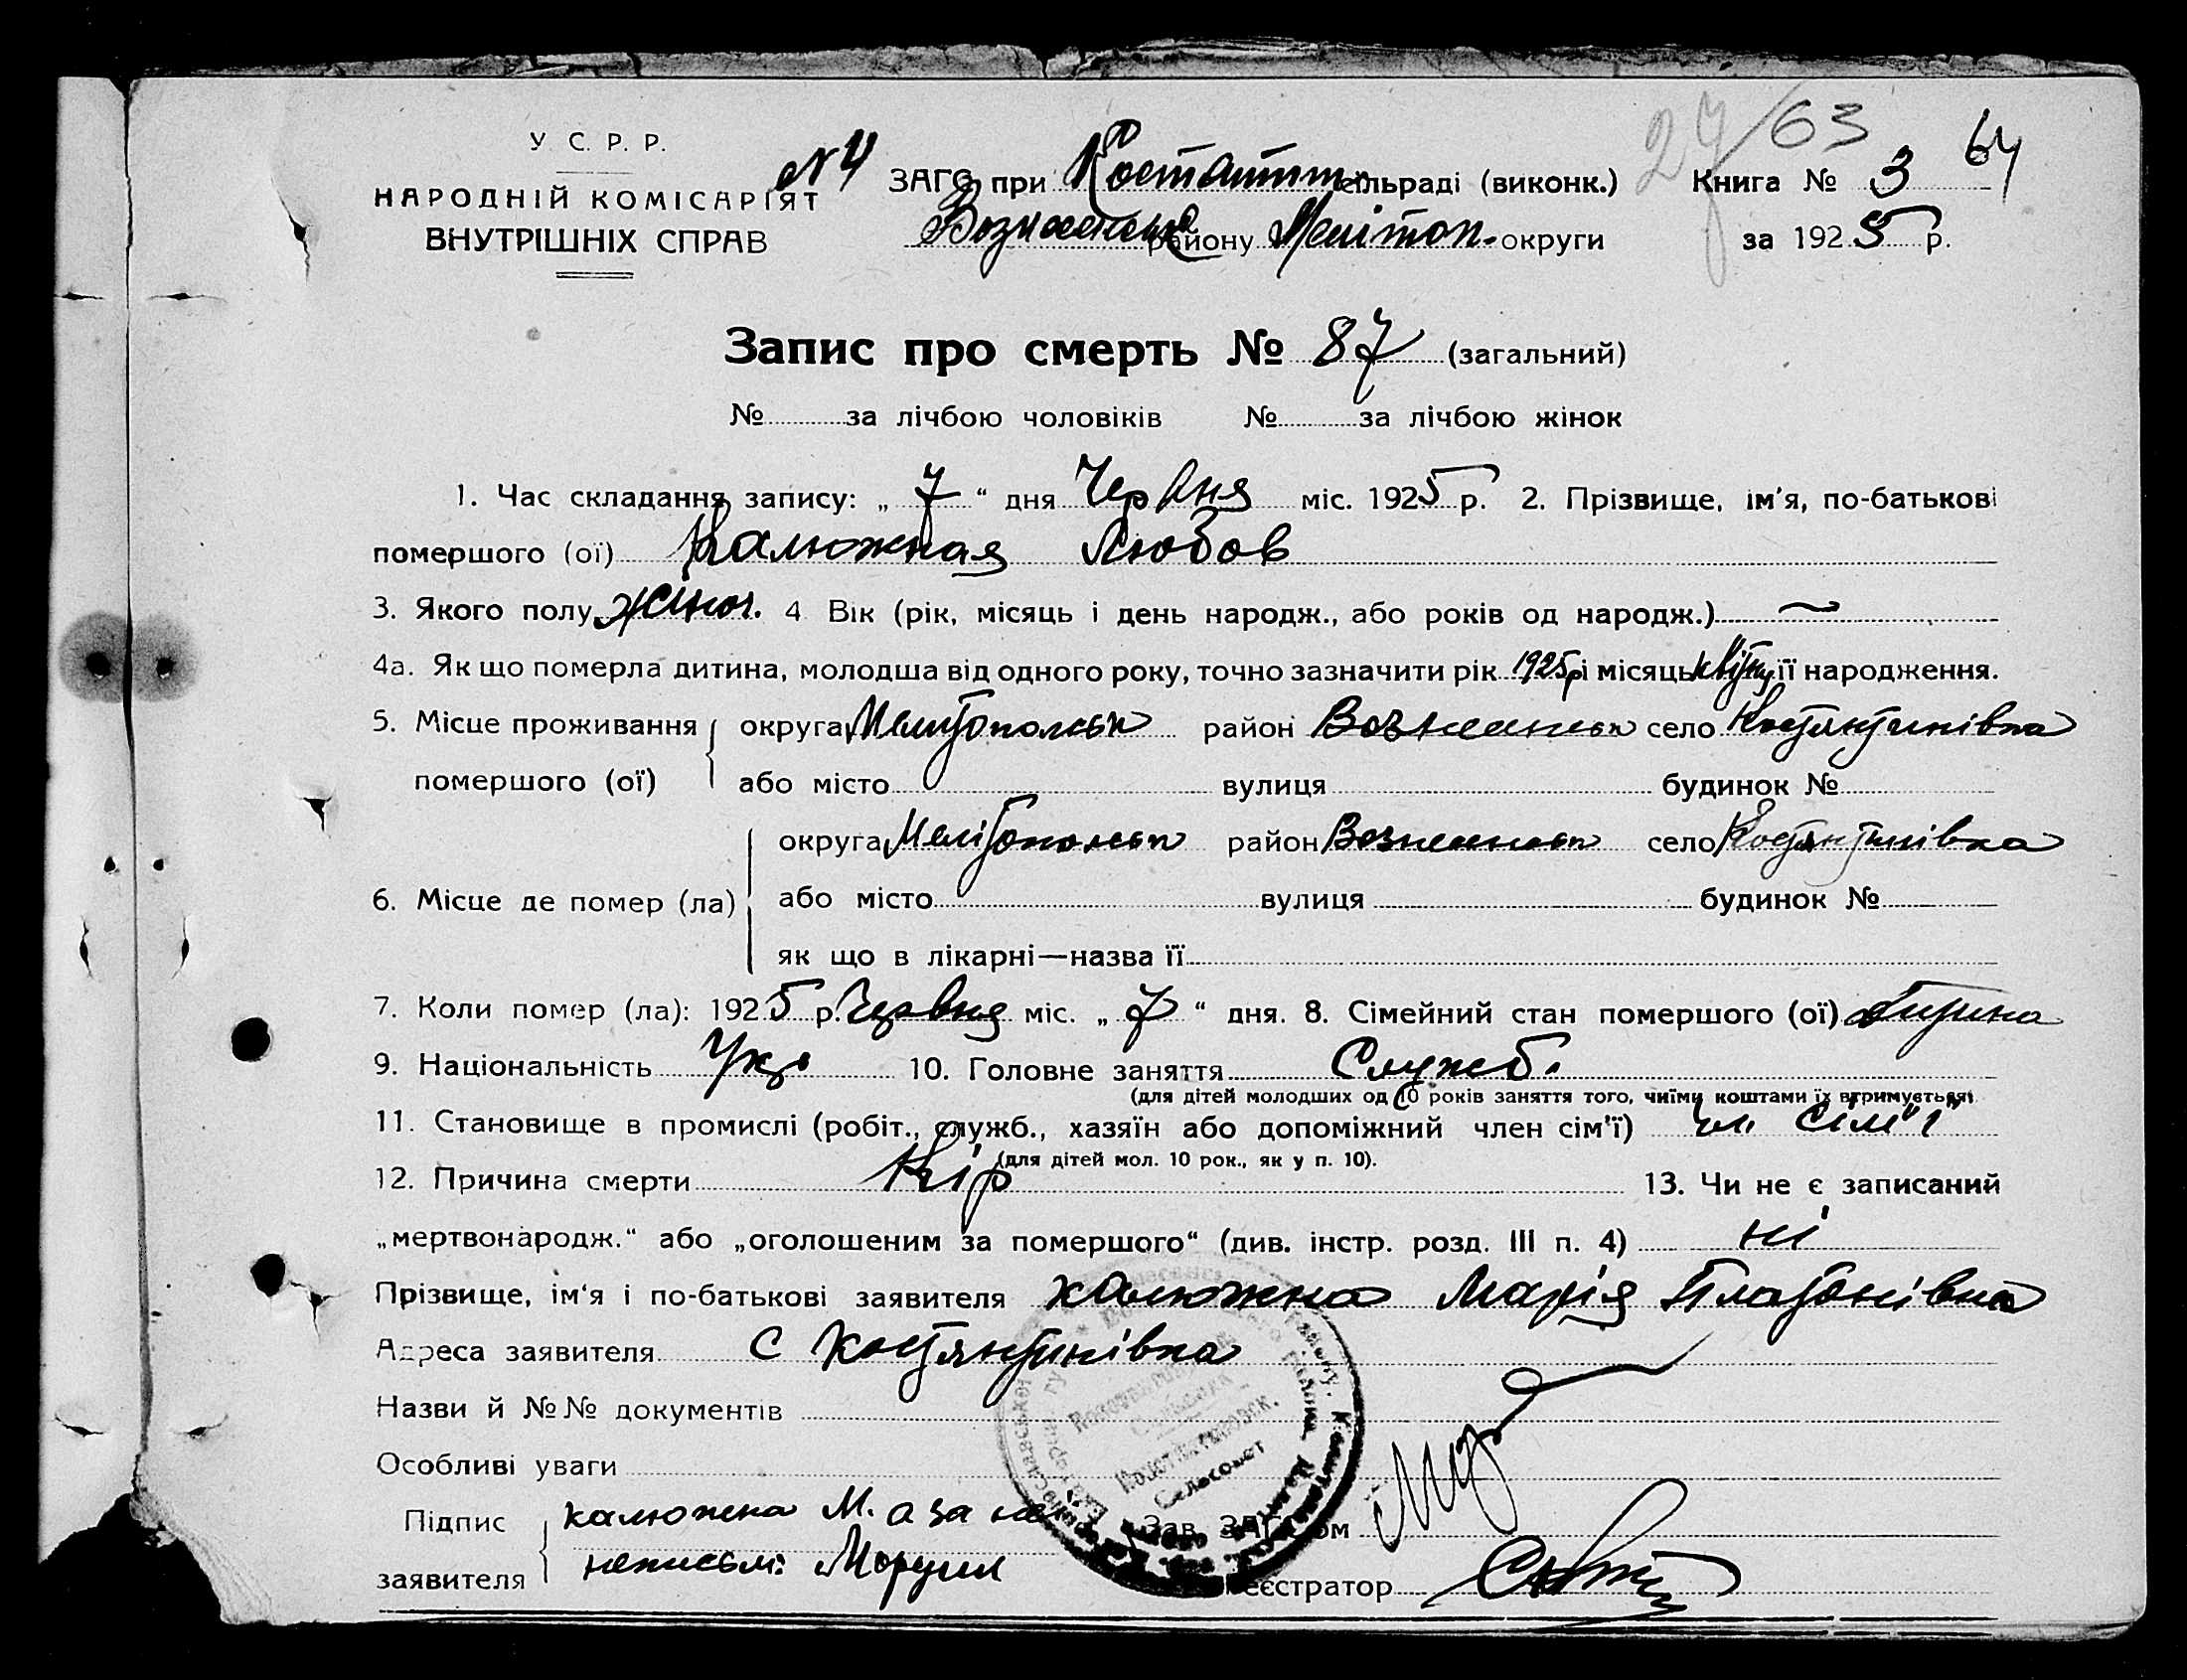 У. С. Р. Р.
НАРОДНІЙ КОМІСАРІЯТ
ВНУТРІШНІХ СПРАВ
N 4 ЗАГС при Костантин сільраді (виконк.)
Вознесенськ району Мелітоп. округи
27/63 64
Книга № 3
за 1925 р.
Запис про смерть № 87 (загальний)
№ за лічбою чоловіків № за лічбою жінок
1. Час складання запису: „ 7 “ дня Червня міс. 1925 р. 2. Прізвище, ім'я, по-батькові
помершого (ої) Калюжная Любов
3. Якого полу жіноч. 4 Вік (рік, місяць і день народж., або років од народж.) ~
4а. Як що померла дитина, молодша від одного року, точно зазначити рік 1925р і місяць квітну її народження.
5. Місце проживання помершого (ої) округа Мелитопольськ район Вознесенськ село Костянтинівка
або місто вулиця будинок №
6. Місце де помер (ла) округа Мелітопольськ район Вознесенськ село Костянтинівка
або місто вулиця будинок №
як що в лікарні—назва її
7. Коли помер (ла): 1925 р. Червня міс. „ 7 “ дня. 8. Сімейний стан помершого (ої) дитина
9. Національність Укр 10. Головне заняття Служб.
(для дітей молодших од 10 років заняття того, чиїми коштами їх втримується)
11. Становище в промислі (робіт., служб., хазяїн або допоміжний член сім'ї) чл. сім"ї
(для дітей мол. 10 рок., як у п. 10).
12. Причина смерти Кір 13. Чи не є записаний
„мертвонародж.“ або „оголошеним за помершого“ (див. інстр. розд. III п. 4) ні
Прізвище, ім'я і по-батькові заявителя Калюжна Марія Платонівна
Адреса заявителя с Костянтинівка
Назви й №№ документів
Особливі уваги
Підпис заявителя калюжна М. а за не
неписьм:
Зав. ЗАГС'ом
Реєстратор
Сельсовет